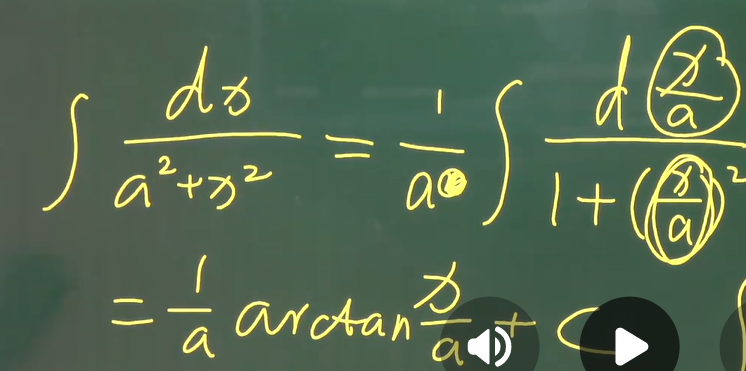 ∫ dx/(a²+x²) = 1/a ∫ d(x/a)/(1+(x/a)²)
= 1/a arctan x/a + C